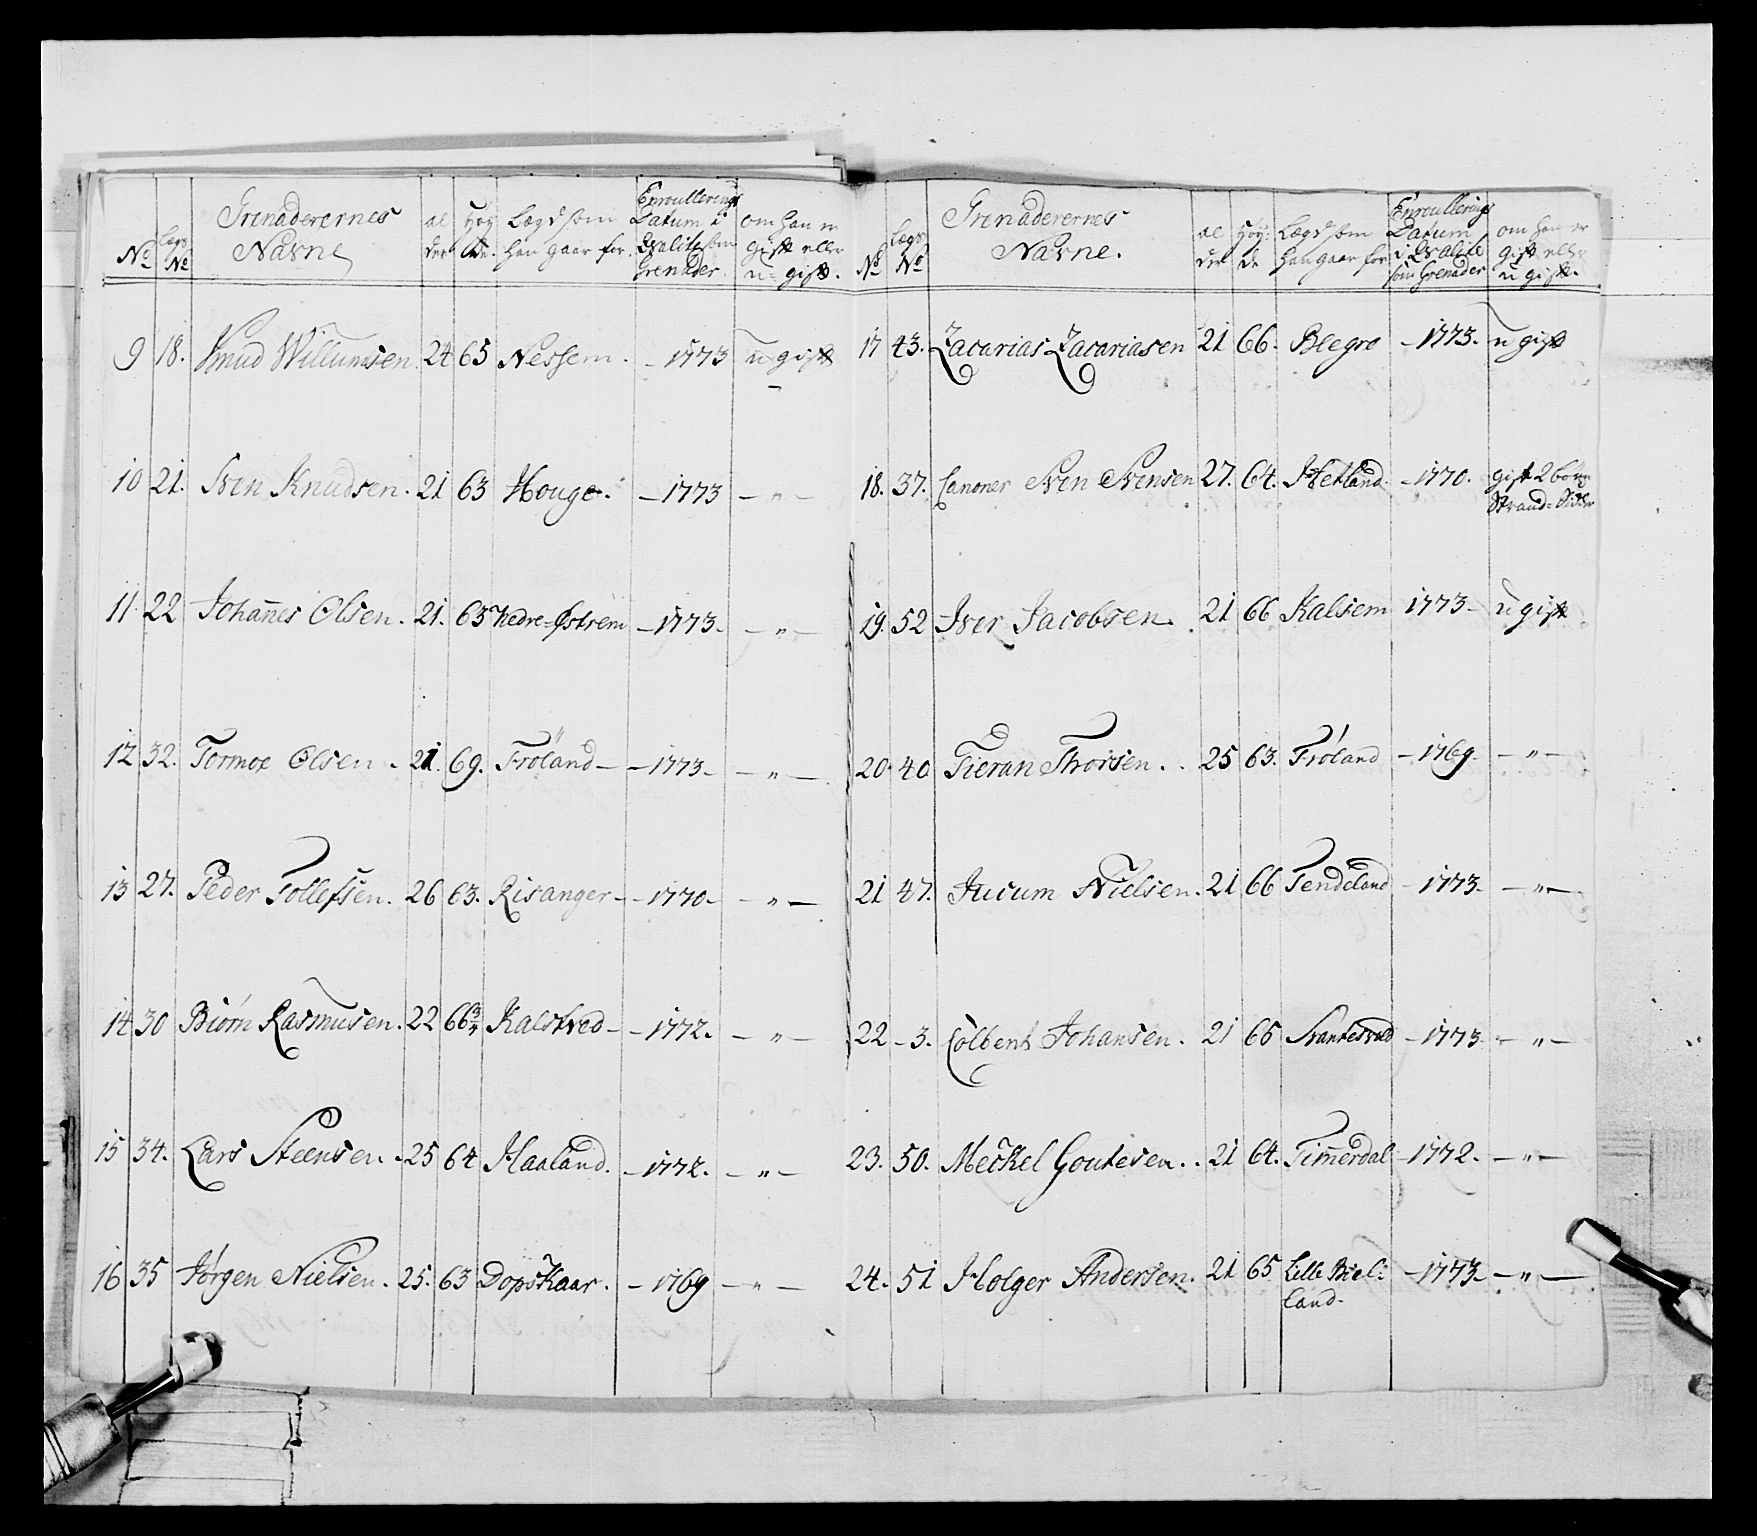 No | Lægs No | Grenaderernes Navne | al der | Høy de. | Lægd som han gaar for. | Enroullerings Datum i Qvalite som Grenader. | om han er gift eller u-gift.
9 | 18. | Knud Willumsen. | 24 | 65 | Nessem. | -1773 | u-gift
10 | 21. | Sven Knudsen. | 21 | 63 | Houge. | -1773 | - " -
11 | 22 | Johannes Olsen. | 21. | 63 | Nedre-Østrem | -1773- | - " -
12 | 32. | Tormoe Olsen. | 21. | 69. | Frøland- | -1773- | - " -
13 | 27. | Peder Tollefsen. | 26 | 63. | Risanger- | -1770- | - " -
14 | 30 | Biørn Rasmusen. | 22 | 66 3/4 | Kalstved- | -1772. | - " -
15 | 34. | Lars Steensen. | 25 | 64 | Haaland. | -1772. | - " -
16 | 35 | Jørgen Nielsen. | 25. | 63 | Dopskaar. | -1769 | - " -
No | Lægs No | Grenaderernes Navne. | al der | Høy: de | Lægd som han gaar for | Enroullerings Datum i Qvalite som Grenader | om han er gift eller u gift.
17 | 43. | Zacarias Zacariasen | 21 | 66. | Blegro | -1773. | u gift
18. | 37. | Canoner Sven Svensen | 27. | 64. | Hetland. | -1770. | gift 2 børn
Strand-Sidder
19. | 52 | Iver Jacobsen. | 21 | 66 | Kalsem | 1773- | u gift
20. | 40 | Tieran Thorsen. | 25 | 63. | Frøland | -1769- | - " -
21 | 47. | Jucum Nielsen. | 21 | 66 | Tendeland | -1773- | - " -
22 | -3. | Colbent Johansen. | 21 | 65 | | -1773- | - " -
23. | 50. | Meckel Goutesen. | 21 | 64. | Timerdal | -1772. | - " -
24. | 51 | Holger Andersen. | 21 | 65 | Lille Biel:
land. | -1773- | - " -